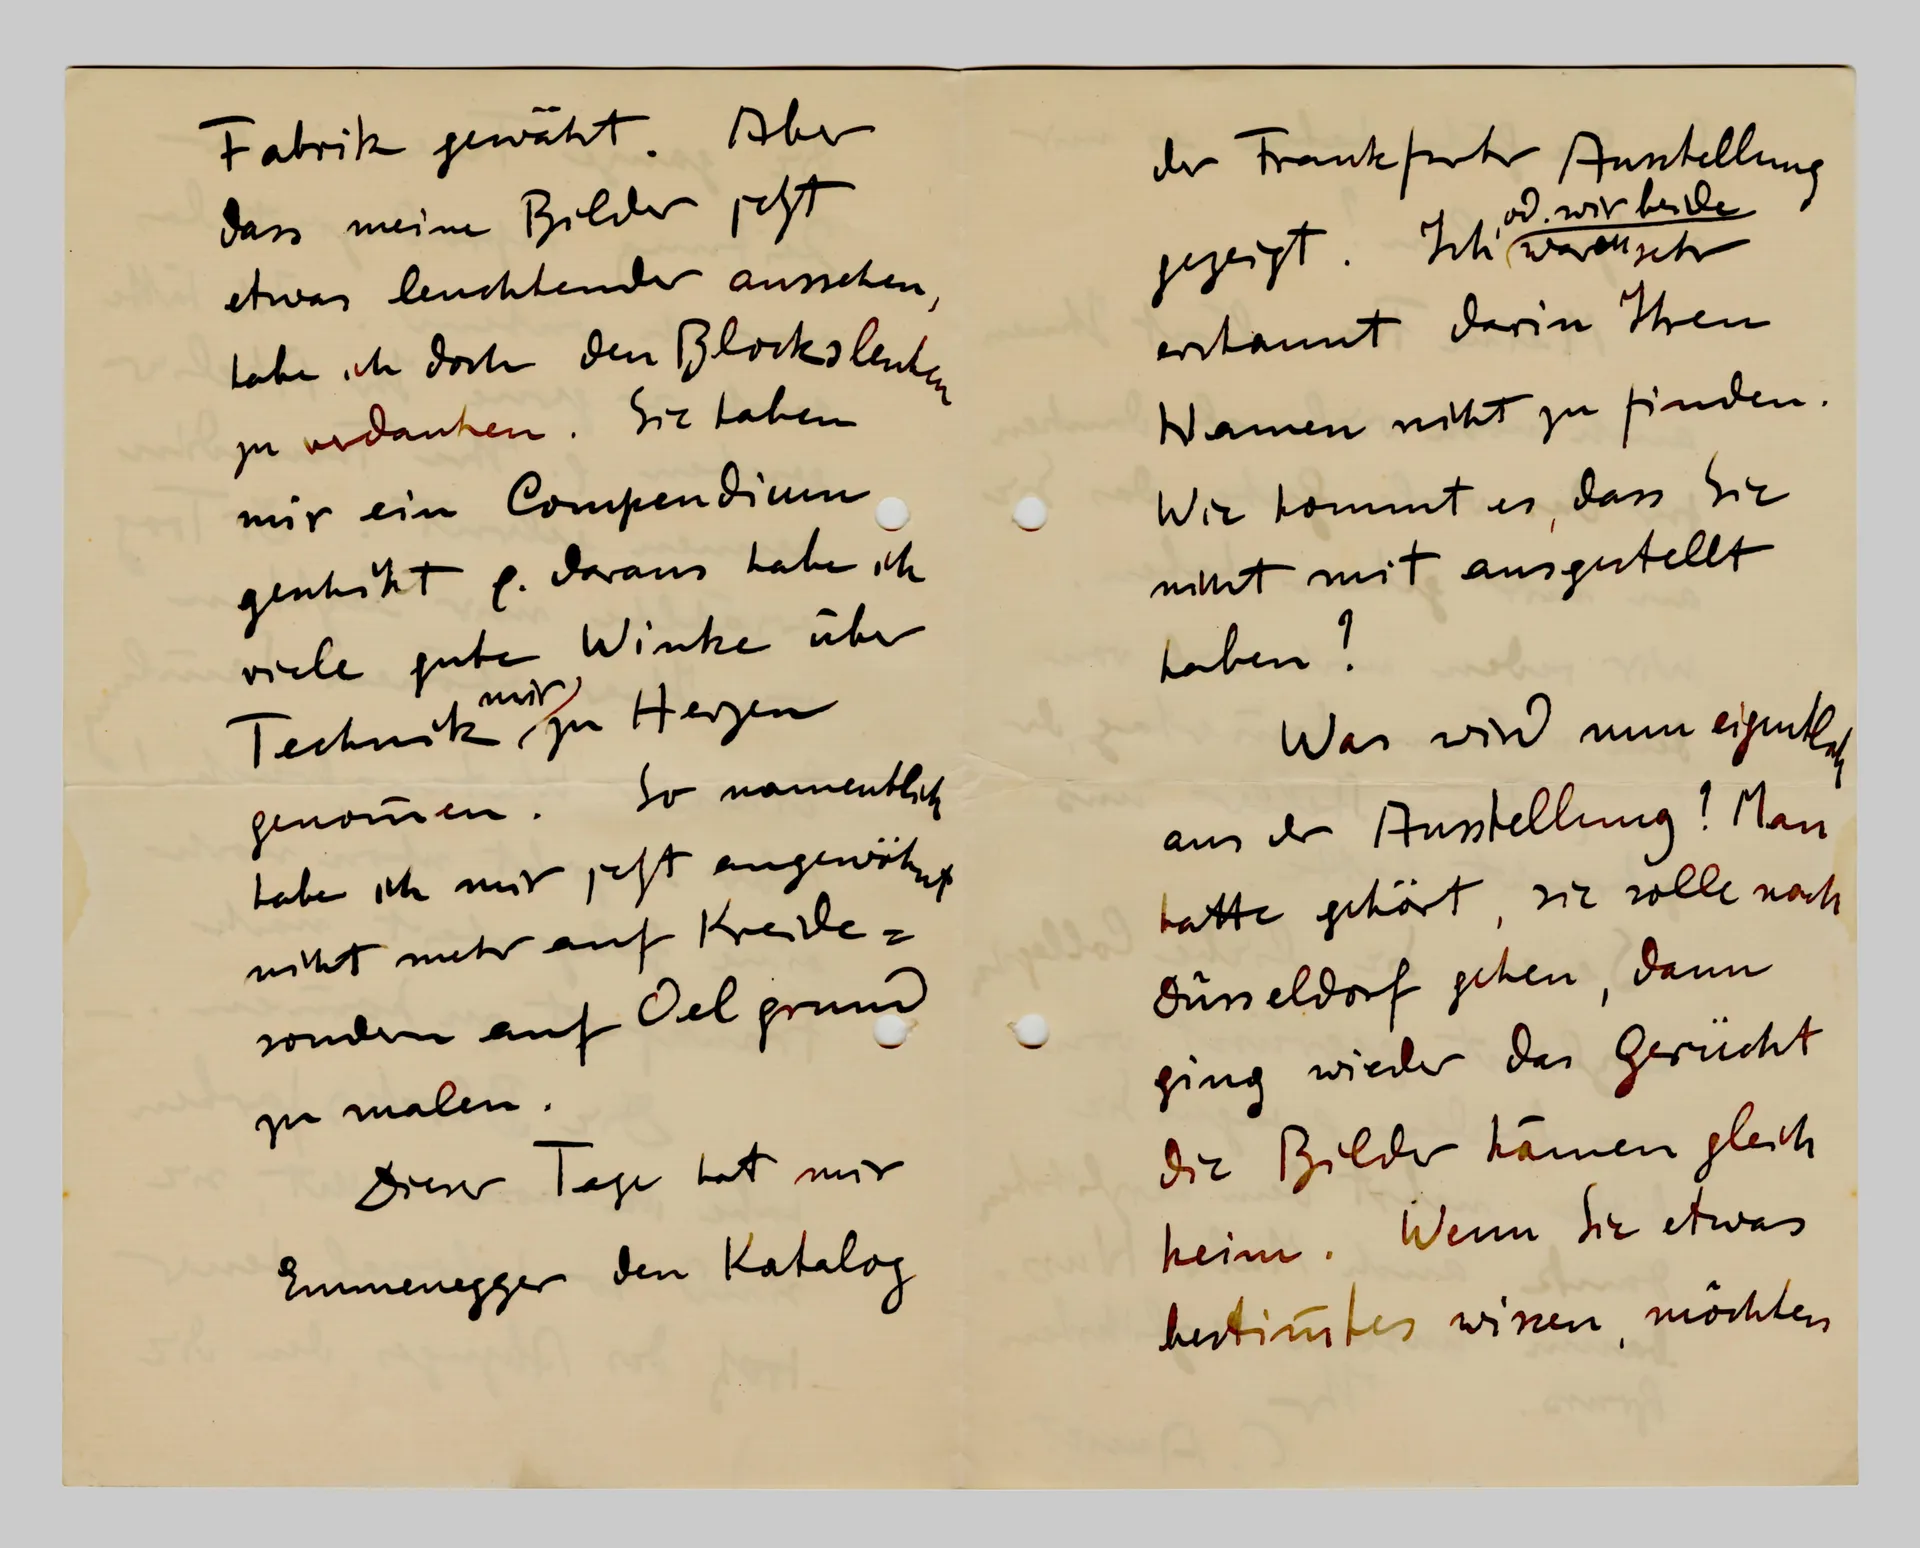 Fabrik gewählt. Aber
dass meine Bilder jetzt
etwas leuchtender aussehen,
habe ich doch den Blockx
zu verdanken. Sie haben
mir ein Compendium
geschikt &. daraus habe ich
viele gute Winke über
Technik mir zu Herzen
genom̄en. So namentlich
habe ich mir jetzt angewöhnt
nicht mehr auf Kreide=
sondern auf Oelgrund
zu malen.
Dieser Tage hat mir
Emmenegger den Katalog
der Frankfurter Ausstellung
gezeigt. Ich od. wir beide waren sehr
erstaunt darin Ihren
Namen nicht zu finden.
Wie kommt es, dass Sie
nicht mit ausgestellt
haben?
Was wird nun eigentlich
aus der Ausstellung? Man
hatte gehört, sie solle nach
Düsseldorf gehen, dann
ging wieder das Gerücht
die Bilder kämen gleich
heim. Wenn Sie etwas
bestim̄tes wissen, möchten